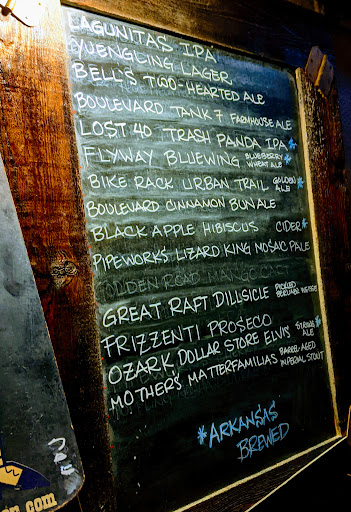 LAGUNITAS IPA
YUENGLING LAGER
BELL'S TWO-HEARTED ALE
BOULEVARD TANK 7 FARMHOUSE ALE
LOST 40 TRASH PANDA IPA *
FLYWAY BLUEWING BLUEBERRY WHEAT ALE *
BIKE RACK URBAN TRAIL GOLDEN ALE *
BOULEVARD CINNAMON BUN ALE
BLACK APPLE HIBISCUS CIDER *
PIPEWORKS LIZARD KING MOSAIC PALE
GOLDEN ROAD MANGO CART
GREAT RAFT DILLSICLE PICKLED BERLINER WEISSE
FRIZZENTI PROSECO
OZARK DOLLAR STORE ELVIS STRONG ALE *
MOTHER'S MATTERFAMILIAS BARREL-AGED IMPERIAL STOUT
*ARKANSAS
BREWED
.com